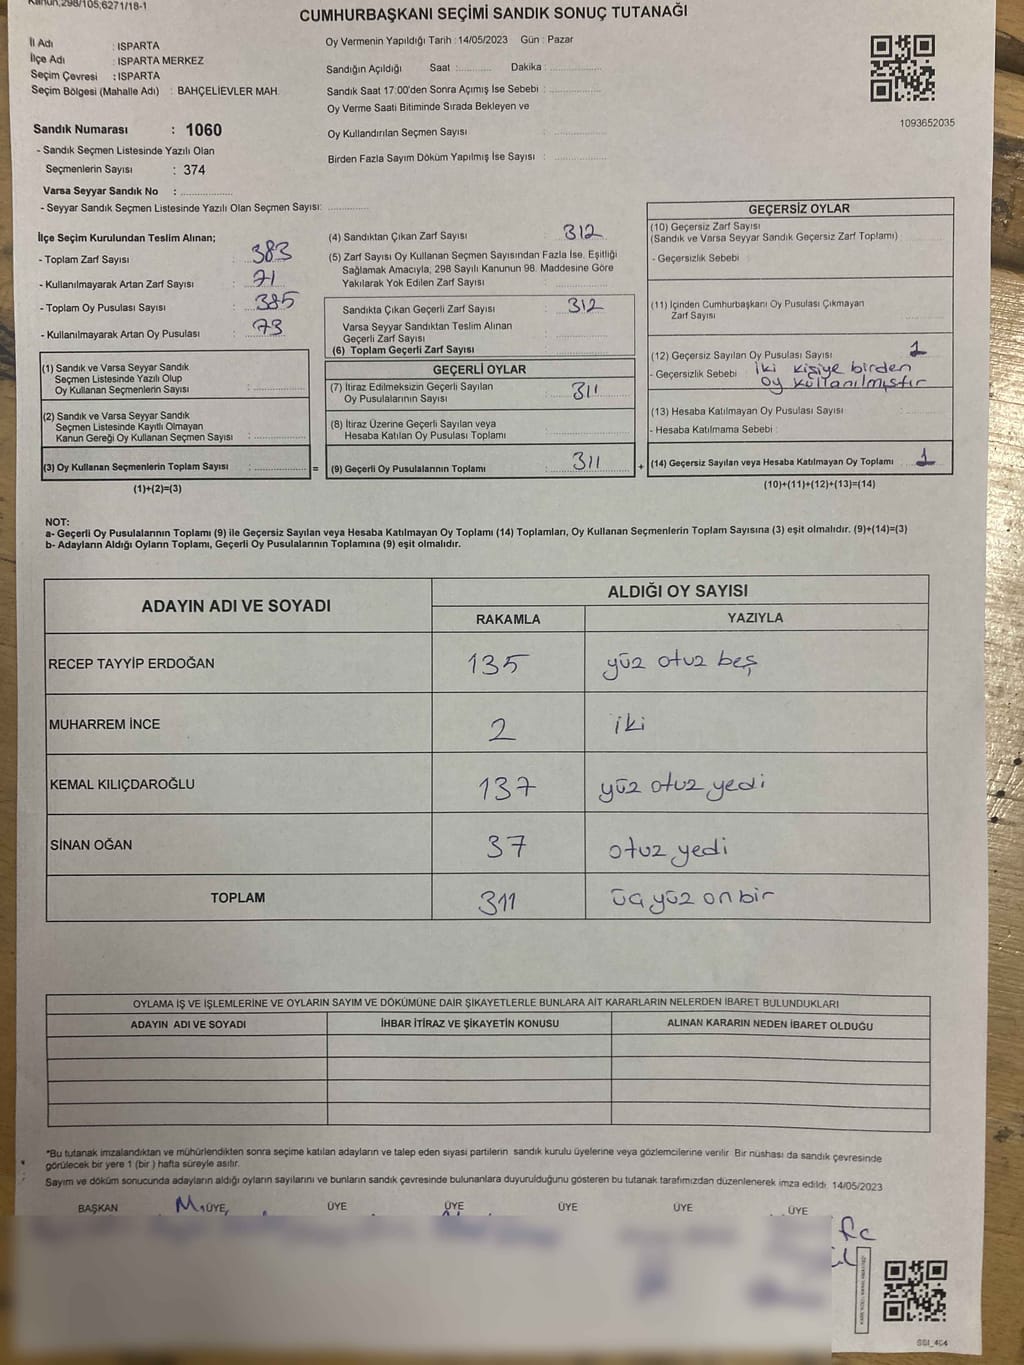 Kanun;298/105;6271/18-1
CUMHURBAŞKANI SEÇİMİ SANDIK SONUÇ TUTANAĞI
İl Adı : ISPARTA
İlçe Adı : ISPARTA MERKEZ
Seçim Çevresi : ISPARTA
Seçim Bölgesi (Mahalle Adı) : BAHÇELİEVLER MAH.
Oy Vermenin Yapıldığı Tarih : 14/05/2023 Gün : Pazar
Sandığın Açıldığı Saat :........... Dakika : .................
Sandık Saat 17:00'den Sonra Açımış İse Sebebi : .................
Oy Verme Saati Bitiminde Sırada Bekleyen ve
Oy Kullandırılan Seçmen Sayısı : .................
Birden Fazla Sayım Döküm Yapılmış İse Sayısı : .................
1093652035
Sandık Numarası : 1060
- Sandık Seçmen Listesinde Yazılı Olan
Seçmenlerin Sayısı : 374
Varsa Seyyar Sandık No : .................
- Seyyar Sandık Seçmen Listesinde Yazılı Olan Seçmen Sayısı: .............
İlçe Seçim Kurulundan Teslim Alınan;
- Toplam Zarf Sayısı : 383
- Kullanılmayarak Artan Zarf Sayısı : 71
- Toplam Oy Pusulası Sayısı : 385
- Kullanılmayarak Artan Oy Pusulası : 73
(1) Sandık ve Varsa Seyyar Sandık
Seçmen Listesinde Yazılı Olup
Oy Kullanan Seçmenlerin Sayısı : .................
(2) Sandık ve Varsa Seyyar Sandık
Seçmen Listesinde Kayıtlı Olmayan
Kanun Gereği Oy Kullanan Seçmen Sayısı : .................
(3) Oy Kullanan Seçmenlerin Toplam Sayısı : ................. =
(1)+(2)=(3)
(4) Sandıktan Çıkan Zarf Sayısı : 312
(5) Zarf Sayısı Oy Kullanan Seçmen Sayısından Fazla İse, Eşitliği
Sağlamak Amacıyla, 298 Sayılı Kanunun 98. Maddesine Göre
Yakılarak Yok Edilen Zarf Sayısı : .................
Sandıkta Çıkan Geçerli Zarf Sayısı : 312
Varsa Seyyar Sandıktan Teslim Alınan
Geçerli Zarf Sayısı : .................
(6) Toplam Geçerli Zarf Sayısı : .................
GEÇERLİ OYLAR
(7) İtiraz Edilmeksizin Geçerli Sayılan
Oy Pusulalarının Sayısı : 311
(8) İtiraz Üzerine Geçerli Sayılan veya
Hesaba Katılan Oy Pusulası Toplamı : .................
(9) Geçerli Oy Pusulalarının Toplamı : 311 +
GEÇERSİZ OYLAR
(10) Geçersiz Zarf Sayısı
(Sandık ve Varsa Seyyar Sandık Geçersiz Zarf Toplamı) : ...........
- Geçersizlik Sebebi :
(11) İçinden Cumhurbaşkanı Oy Pusulası Çıkmayan
Zarf Sayısı : ...........
(12) Geçersiz Sayılan Oy Pusulası Sayısı : 1
- Geçersizlik Sebebi : iki kişiye birden
oy kullanılmıştır
(13) Hesaba Katılmayan Oy Pusulası Sayısı : ...........
- Hesaba Katılmama Sebebi :
(14) Geçersiz Sayılan veya Hesaba Katılmayan Oy Toplamı : 1
(10)+(11)+(12)+(13)=(14)
NOT:
a- Geçerli Oy Pusulalarının Toplamı (9) ile Geçersiz Sayılan veya Hesaba Katılmayan Oy Toplamı (14) Toplamları, Oy Kullanan Seçmenlerin Toplam Sayısına (3) eşit olmalıdır. (9)+(14)=(3)
b- Adayların Aldığı Oyların Toplamı, Geçerli Oy Pusulalarının Toplamına (9) eşit olmalıdır.
ADAYIN ADI VE SOYADI ALDIĞI OY SAYISI
RAKAMLA YAZIYLA
RECEP TAYYİP ERDOĞAN 135 yüz otuz beş
MUHARREM İNCE 2 iki
KEMAL KILIÇDAROĞLU 137 yüz otuz yedi
SİNAN OĞAN 37 otuz yedi
TOPLAM 311 üç yüz on bir
OYLAMA İŞ VE İŞLEMLERİNE VE OYLARIN SAYIM VE DÖKÜMÜNE DAİR ŞİKAYETLERLE BUNLARA AİT KARARLARIN NELERDEN İBARET BULUNDUKLARI
ADAYIN ADI VE SOYADI İHBAR İTİRAZ VE ŞİKAYETİN KONUSU ALINAN KARARIN NEDEN İBARET OLDUĞU
*Bu tutanak imzalandıktan ve mühürlendikten sonra seçime katılan adayların ve talep eden siyasi partilerin sandık kurulu üyelerine veya gözlemcilerine verilir. Bir nüshası da sandık çevresinde
görülecek bir yere 1 (bir ) hafta süreyle asılır.
Sayım ve döküm sonucunda adayların aldığı oyların sayılarını ve bunların sandık çevresinde bulunanlara duyurulduğunu gösteren bu tutanak tarafımızdan düzenlenerek imza edildi. 14/05/2023
BAŞKAN ÜYE ÜYE ÜYE ÜYE ÜYE ÜYE